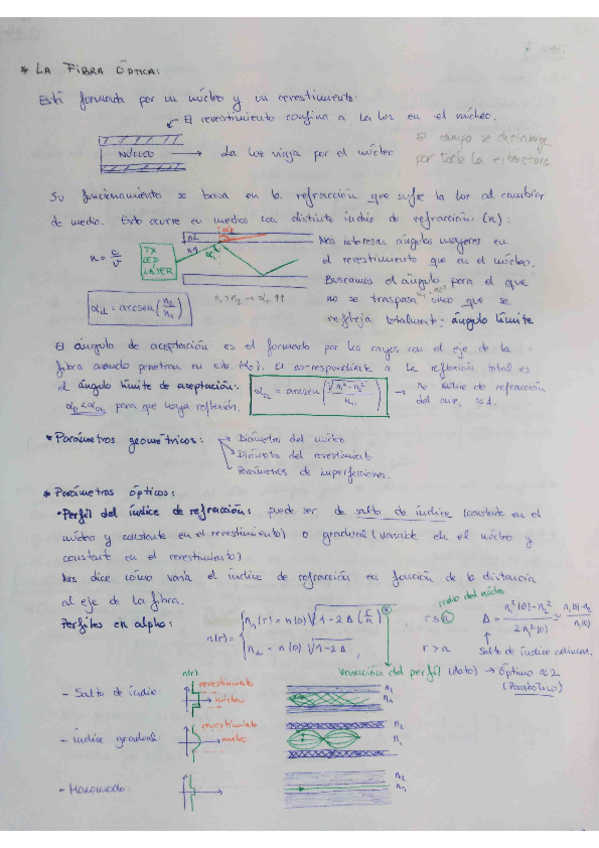 * LA FIBRA ÓPTICA:
Está formada por un núcleo y un revestimiento:
El revestimiento confina a la luz en el núcleo.
NÚCLEO → La luz viaja por el núcleo
El campo se distribuye
por toda la estructura
Su funcionamiento se basa en la refracción que sufre la luz al cambiar
de medio. Esto ocurre en medios con distinto índice de refracción (n):
n = c/v
TX
LED
LÁSER
n2
n1
Nos interesan ángulos mayores en
el revestimiento que en el núcleo.
Buscamos el ángulo para el que
no se traspasa sino que se
refleja totalmente: ángulo límite
αiL = arcsen(n2/n1)
El ángulo de aceptación es el formado por los rayos con el eje de la
fibra cuando penetran en ella (α0). El correspondiente a la reflexión total es
el ángulo límite de aceptación:
α0L = arcsen(√(n1² - n2²)/n0) → n0 índice de refracción
del aire, ≈ 1.
α0 < α0L para que haya reflexión.
* Parámetros geométricos:
Diámetro del núcleo
Diámetro del revestimiento
Parámetros de imperfecciones.
* Parámetros ópticos:
• Perfil del índice de refracción: puede ser de salto de índice (constante en el
núcleo y constante en el revestimiento) o gradual (variable en el núcleo y
constante en el revestimiento)
Nos dice cómo varía el índice de refracción en función de la distancia
al eje de la fibra.
Perfiles en alpha:
radio del núcleo
n(r) = { n1(r) = n(0) √(1 - 2Δ (r/a)^α) , r ≤ a
n2 = n(0) √(1 - 2Δ) , r > a
Δ = (n1²(0) - n2²)/(2n1²(0)) ≈ (n1(0) - n2)/n1(0)
Variación del perfil (dato) → óptimo ≈ 2
(Parabólico)
n(r)
- Salto de índice
revestimiento
núcleo
n2
n1
- Índice gradual:
revestimiento
núcleo
n2
n1
- Monomodo:
n2
n1